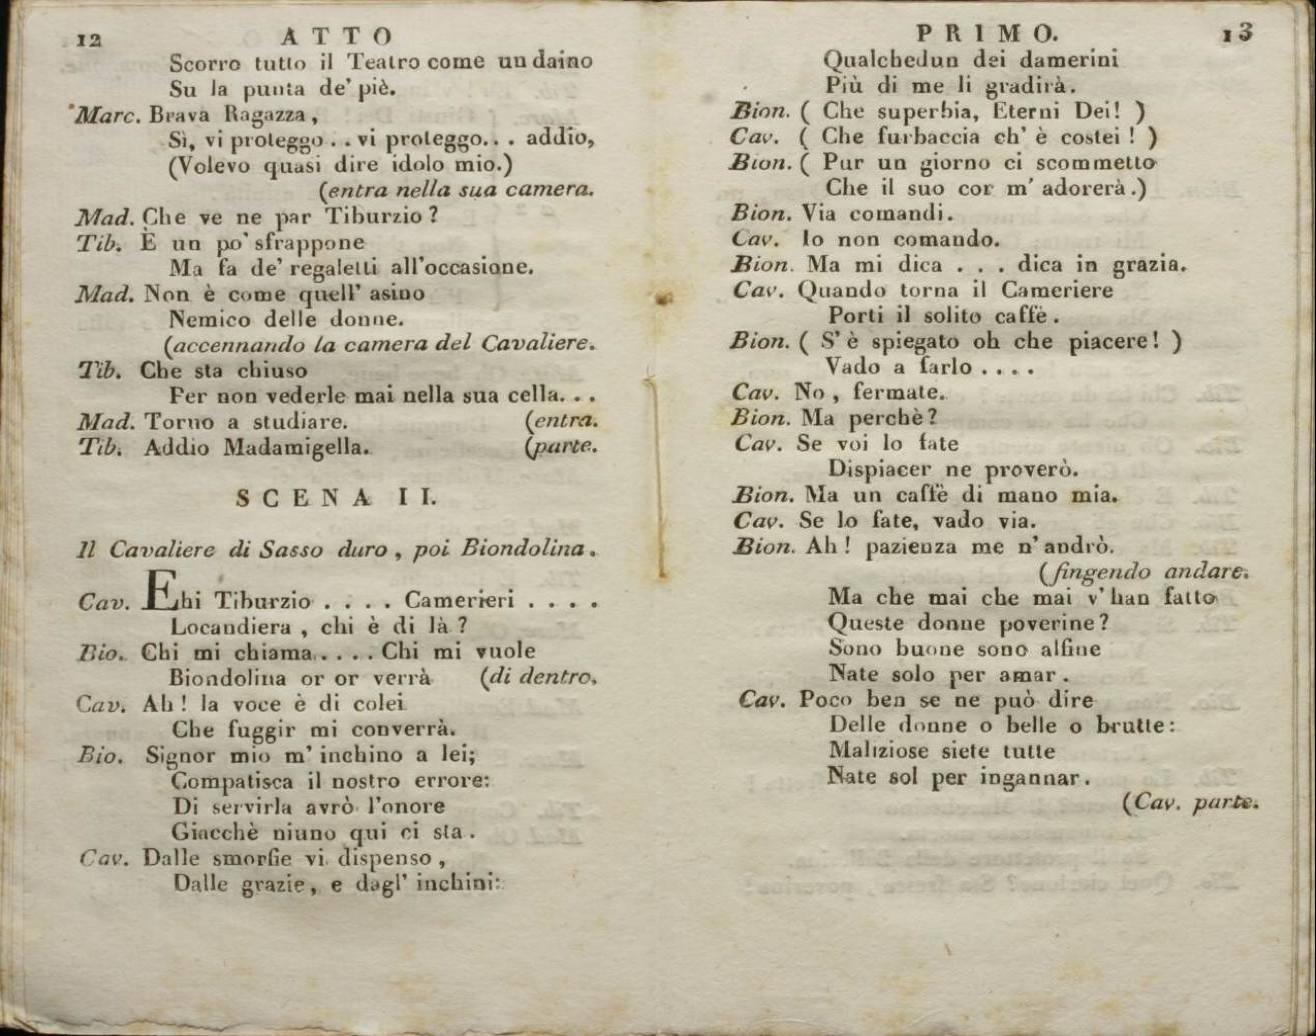 12 ATTO
Scorro tutto il Teatro come un daino
Su la punta de' piè.
Marc. Brava Ragazza,
Sì, vi proteggo . . vi proteggo. . . addio,
(Volevo quasi dire idolo mio.)
(entra nella sua camera.
Mad. Che ve ne par Tiburzio?
Tib. È un po' sfrappone
Ma fa de' regaletti all'occasione.
Mad. Non è come quell' asino
Nemico delle donne.
(accennando la camera del Cavaliere.
Tib. Che sta chiuso
Per non vederle mai nella sua cella. . .
Mad. Torno a studiare. (entra.
Tib. Addio Madamigella. (parte.
SCENA II.
Il Cavaliere di Sasso duro, poi Biondolina.
Cav. Ehi Tiburzio . . . . Camerieri . . . .
Locandiera, chi è di là?
Bio. Chi mi chiama. . . . . Chi mi vuole
Biondolina or or verrà (di dentro,
Cav. Ah! la voce è di colei
Che fuggir mi converrà.
Bio. Signor mio m' inchino a lei;
Compatisca il nostro errore:
Di servirla avrò l'onore
Giacchè niuno qui ci sta.
Cav. Dalle smorfie vi dispenso,
Dalle grazie, e dagl' inchini:
PRIMO. 13
Qualchedun dei damerini
Più di me li gradirà.
Bion. ( Che superbia, Eterni Dei! )
Cav. ( Che furbaccia ch' è costei! )
Bion. ( Pur un giorno ci scommetto
Che il suo cor m' adorerà.)
Bion. Via comandi.
Cav. Io non comando.
Bion. Ma mi dica . . . dica in grazia.
Cav. Quando torna il Cameriere
Porti il solito caffè.
Bion. ( S' è spiegato oh che piacere! )
Vado a farlo . . . .
Cav. No, fermate.
Bion. Ma perchè?
Cav. Se voi lo fate
Dispiacer ne proverò.
Bion. Ma un caffè di mano mia.
Cav. Se lo fate, vado via.
Bion. Ah! pazienza me n' andrò.
(fingendo andare.
Ma che mai che mai v' han fatto
Queste donne poverine?
Sono buone sono alfine
Nate solo per amar.
Cav. Poco ben se ne può dire
Delle donne o belle o brutte:
Maliziose siete tutte
Nate sol per ingannar.
(Cav. parte.